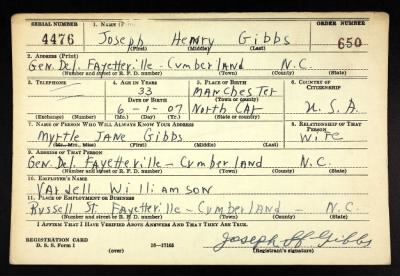 SERIAL NUMBER 1. NAME (Print) ORDER NUMBER
4476 Joseph Henry Gibbs 650
(First) (Middle) (Last)
2. ADDRESS (Print)
Gen. Del. Fayetteville - Cumberland N.C.
(Number and street or R. F. D. number) (Town) (County) (State)
3. TELEPHONE 4. AGE IN YEARS 5. PLACE OF BIRTH 6. COUNTRY OF CITIZENSHIP
33 Manchester
DATE OF BIRTH (Town or county)
6-1-07 North Car U.S.A.
(Exchange) (Number) (Mo.) (Day) (Yr.) (State or country)
7. NAME OF PERSON WHO WILL ALWAYS KNOW YOUR ADDRESS 8. RELATIONSHIP OF THAT PERSON
Myrtle Jane Gibbs Wife
(Mr., Mrs., Miss) (First) (Middle) (Last)
9. ADDRESS OF THAT PERSON
Gen. Del. Fayetteville - Cumberland N.C.
(Number and street or R. F. D. number) (Town) (County) (State)
10. EMPLOYER'S NAME
Vardell Williamson
11. PLACE OF EMPLOYMENT OR BUSINESS
Russell St. Fayetteville - Cumberland - N.C.
(Number and street or R. F. D. number) (Town) (County) (State)
I AFFIRM THAT I HAVE VERIFIED ABOVE ANSWERS AND THAT THEY ARE TRUE.
REGISTRATION CARD
D. S. S. Form 1 (over) 16-17105 Joseph H Gibbs
(Registrant's signature)